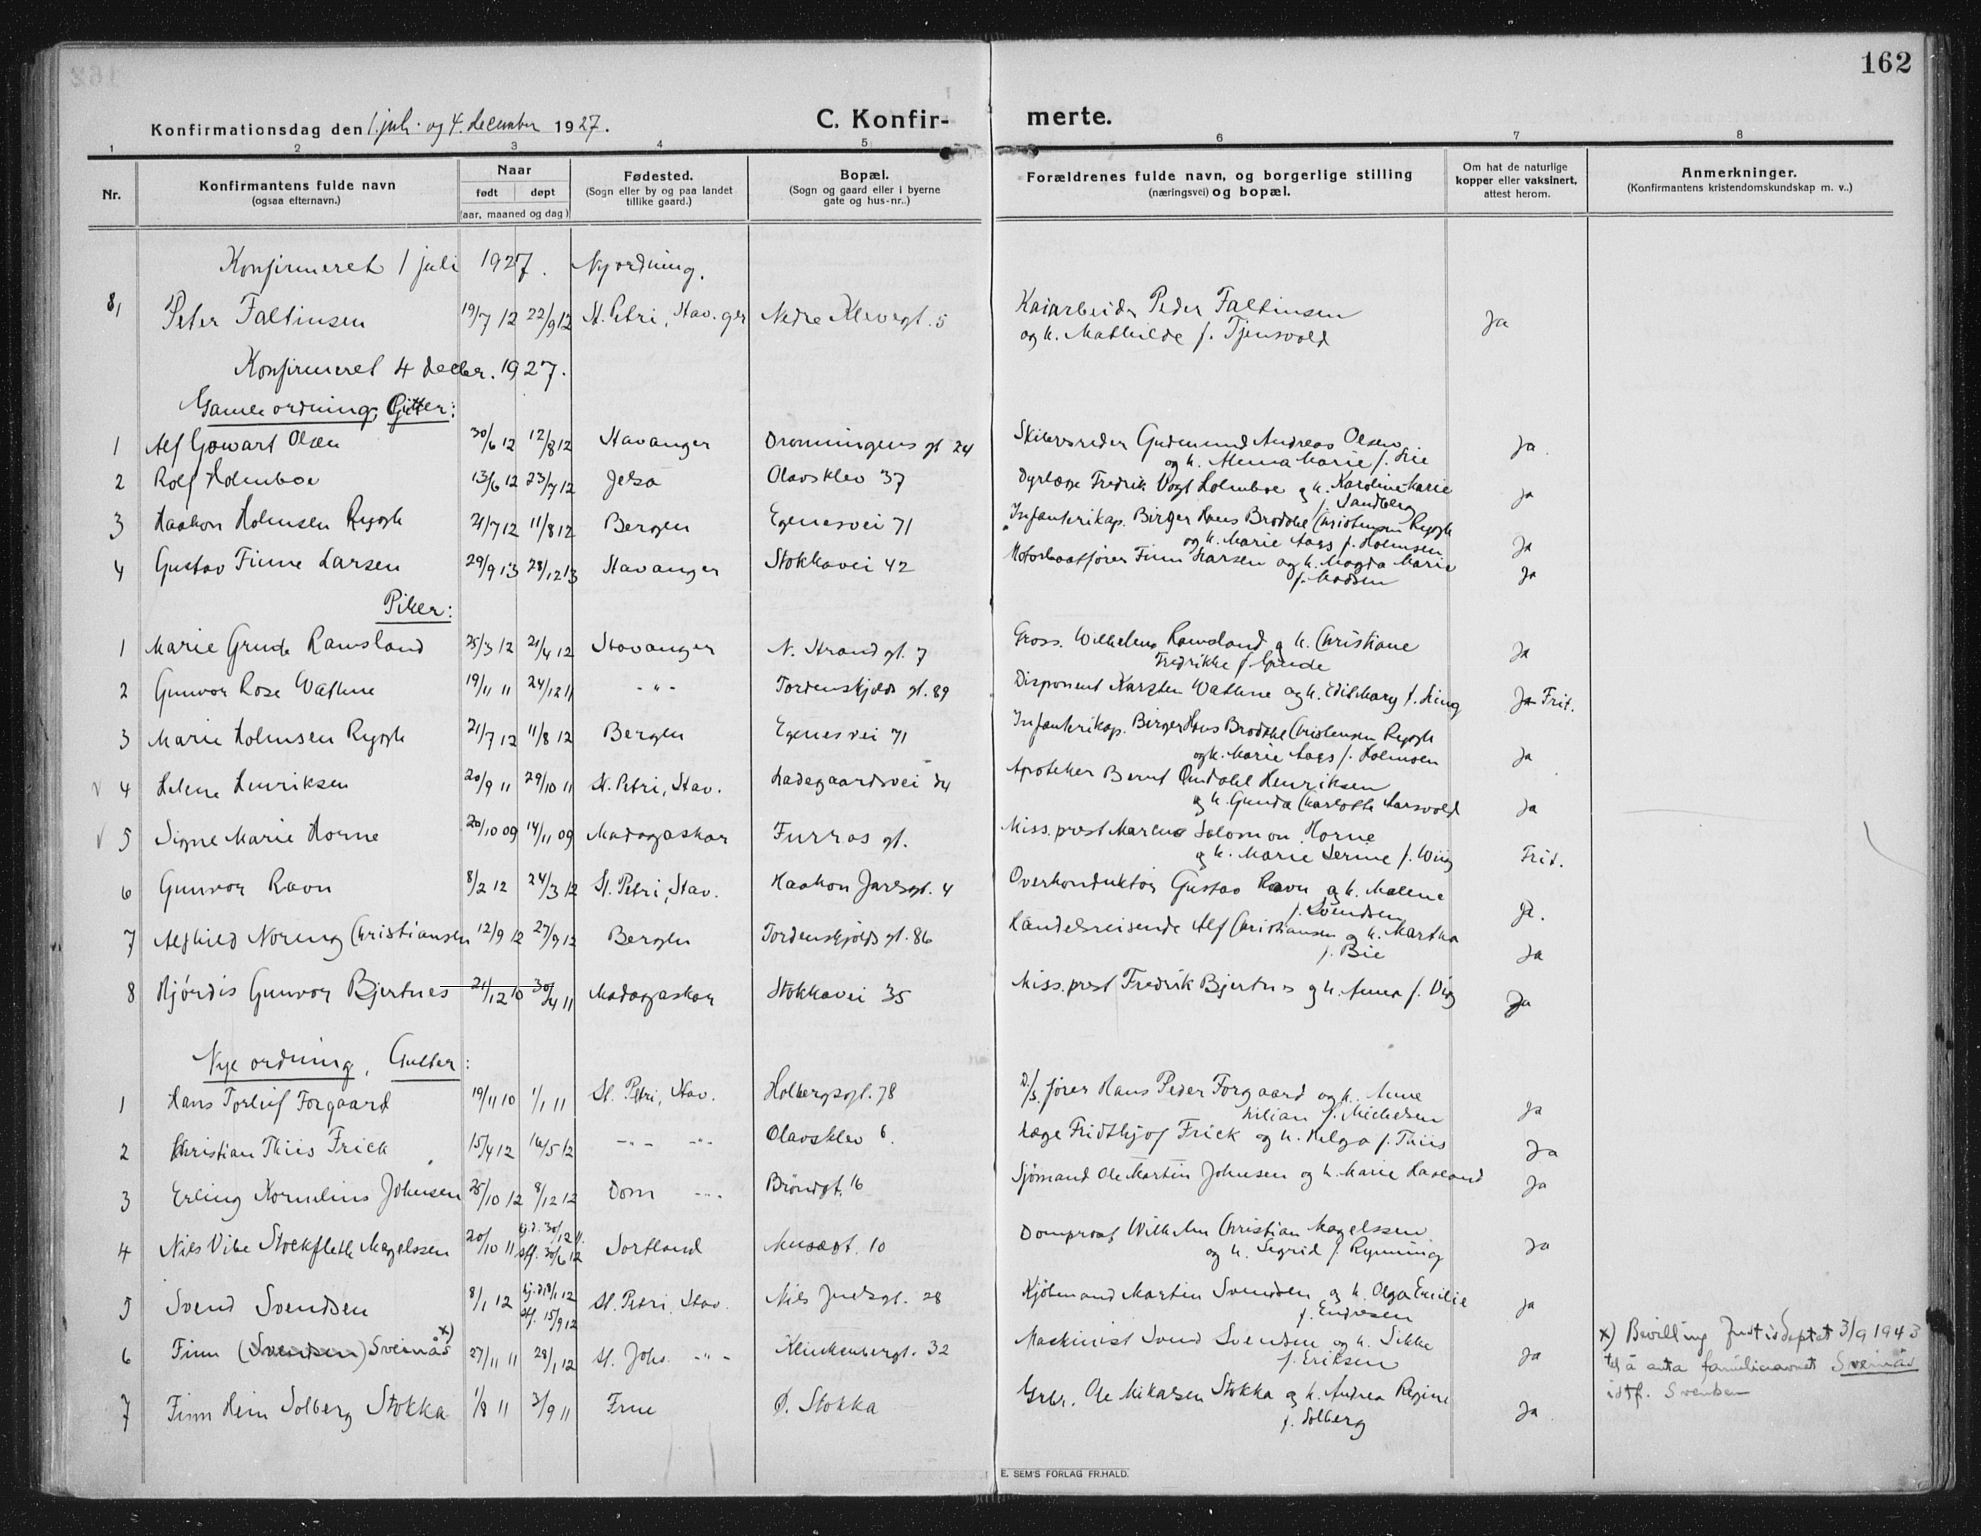 162
Konfirmationsdag den 1. juli og 4. december 1927.
C. Konfirmerte.
1 2 3 4 5 6 7 8
Nr.
Konfirmantens fulde navn
(ogsaa efternavn.)
Naar
født døpt
(aar, maaned og dag)
Fødested.
(Sogn eller by og paa landet
tillike gaard.)
Bopæl.
(Sogn og gaard eller i byerne
gate og hus-nr..)
Forældrenes fulde navn, og borgerlige stilling
(næringsvei) og bopæl.
Om hat de naturlige
kopper eller vaksinert,
attest herom.
Anmerkninger.
(Konfirmantens kristendomskundskap m. v..)
Konfirmeret 1 juli 1927. Ny ordning.
81 Peter Faltinsen 19/7 12 22/9 12 St. Petri, Stav.ger Nedre Klevegt. 5 Kaiarbeider Peder Faltinsen Ja
og h. Mathilde f. Tjensvold
Konfirmeret 4 decbr. 1927.
Gamle ordning, Gutter:
1 Alf Gowart Olsen 30/6 12 12/8 12 Stavanger Dronningens gt 24 Skibsreder Gudmund Andreas Olsen Ja.
og h. Marie f. Lie
2 Rolf Holmboe 13/6 12 23/7 12 Jelsa Olavsklev 37 Dyrlæge Fredrik Vogt Holmboe og h. Karoline Marie Ja
f. Sandberg
3 Haakon Holmsen Rygh 21/7 12 11/8 12 Bergen Egenesvei 71 Infanterikap. Birger Hans Broddhe Christensen Rygh
og h. Marie Aars f. Holmsen Ja
4 Gustav Finne Larsen 29/9 13 28/12 13 Stavanger Stokkavei 42 Motorbaatfører Finn Larsen og h. Magda Marie Ja
f. Madsen
Piker:
1 Marie Grude Ramsland 25/3 12 21/4 12 Stavanger N. Strandgt. 7 Gross. Wilhelm Ramsland og h. Christiane Ja
Fredrikke f. Grude
2 Gunvor Rose Wathne 19/11 11 24/12 11 - " - Tordenskjolds gt. 89 Disponent Karsten Wathne og h. Edit Mary f. King Ja Frit.
3 Marie Holmsen Rygh 21/7 12 11/8 12 Bergen Egenesvei 71 Infanterikap. Birger Hans Broddhe Christensen Rygh
og h. Marie Aars f. Holmsen Ja
√ 4 Helene Henriksen 20/9 11 29/10 11 St. Petri, Stav. Ladegaardsvei 24 Apoteker Bernt Omdahl Henriksen
og h. Gunda Charlotte Aarsvold Ja
√ 5 Signe Marie Horne 20/10 09 14/11 09 Madagaskar Furras gt. Miss. prest Salomon Horne
og h. Marie Serine f. Wiig Frit.
6 Gunvor Ravn 8/2 12 24/3 12 St. Petri, Stav. Haakon Jarlsgt. 4 Overkonduktør Gustav Ravn og h. Malene
f. Svendsen Ja.
7 Alfhild Noreng Christiansen 12/9 12 27/9 12 Bergen Tordenskjolds gt. 86 Handelsreisende Alf Christiansen og h. Martha
f. Bie Ja
8 Hjørdis Gunvor Bjertnes 21/12 10 30/4 11 Madagaskar Stokkavei 35 Miss. prest Fredrik Bjertnes og h. Anna f. Ja
Nye ordning, Gutter:
1 Hans Torleif Forgaard 19/11 10 1/1 11 St. Petri, Stav. Holbergsgt. 78 D/s. fører Hans Peder Forgaard og h. Anne
Lilian f. Michelsen Ja
2 Christian Thiis Frick 15/4 12 16/5 12 - " - - " - Olavsklev 6. Læge Fridthjof Frick og h. Helga f. Thiis Ja
3 Erling Kornelius Johnsen 25/10 12 8/12 12 Dom - " - Brøndgt. 16 Sjømand Ole Martin Johnsen og h. Marie Haaland Ja
4 Nils Vibe Stockfleth Magelssen 20/10 11 hj.d. 30/12 11. stf. 30/6 12 Sortland Musægt. 10 Domprost Wilhelm Christian Magelssen
og h. Sigrid f. Rynning Ja
5 Svend Svendsen 8/1 12 hj.d. 18/1 12 stf. 15/9 12 St. Petri, Stav. Nils Juelsgt. 28 Kjøbmand Martin Svendsen og h. Olga Emilie
f. Endresen Ja
6 Finn (Svendsen) Sveinås x) 27/11 11 28/1 12 St. Johs. - " - Klinkenberggt. 32 Maskinist Svend Svendsen og h. Sikke
f. Eriksen Ja
x) Bevilling Justisdeptet 3/9 1943
til å anta familienavnet Sveinås
istf. Svendsen
7 Finn Hein Solberg Stokka 1/8 11 3/9 11 Frue Ø. Stokka Grbr. Ole Mikalsen Stokka og h. Andrea Regine
f. Solberg Ja
E. SEM'S FORLAG FR.HALD.